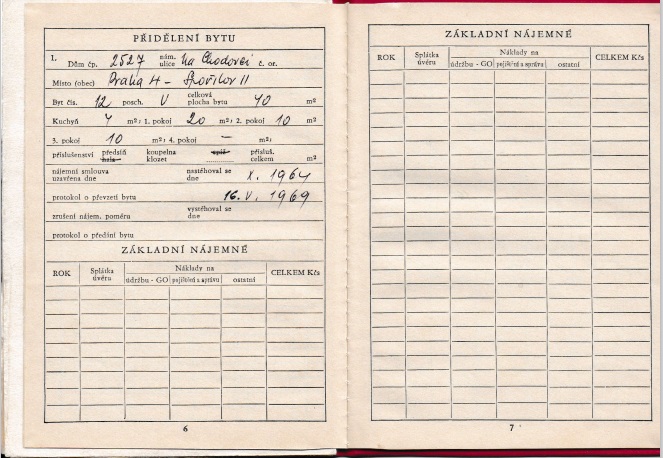 PŘIDĚLENÍ BYTU
1. Dům čp. 2527 nám. ulice Na Chodovci č. or.
Místo (obec) Praha 4 - Spořilov II
Byt čís. 12 posch. V celková plocha bytu 40 m²
Kuchyň 4 m²; 1. pokoj 20 m²; 2. pokoj 10 m²
3. pokoj 10 m²; 4. pokoj — m²;
příslušenství předsíň hala koupelna klozet spíž přísluš. celkem m²
nájemní smlouva uzavřena dne nastěhoval se X. 1964
protokol o převzetí bytu 16. V. 1969
zrušení nájem. poměru vystěhoval se dne
protokol o předání bytu
ZÁKLADNÍ NÁJEMNÉ
ROK Splátka úvěru Náklady na CELKEM Kčs
údržbu - GO pojištění a správu ostatní
6
ZÁKLADNÍ NÁJEMNÉ
ROK Splátka úvěru Náklady na CELKEM Kčs
údržbu - GO pojištění a správu ostatní
7